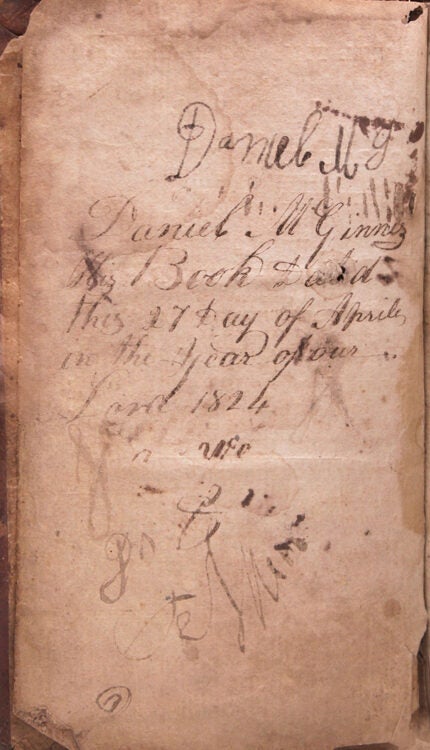 Daniel Mg
Daniel McGinnes
His Book Dated
this 27 Day of Aprile
in the Year of our
Lord 1824